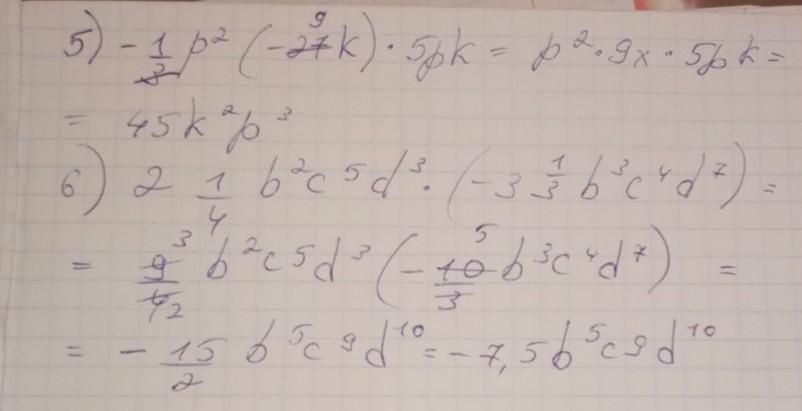 5) -1/3 p² (-27k) 9 · 5pk = p² · 9x · 5pk =
= 45k²p³
6) 2 1/4 b²c⁵d³ · (-3 1/3 b³c⁴d⁷) =
= 9/4 3/2 b²c⁵d³ (-10/3 5 b³c⁴d⁷) =
= -15/2 b⁵c⁹d¹⁰ = -7,5b⁵c9d¹⁰